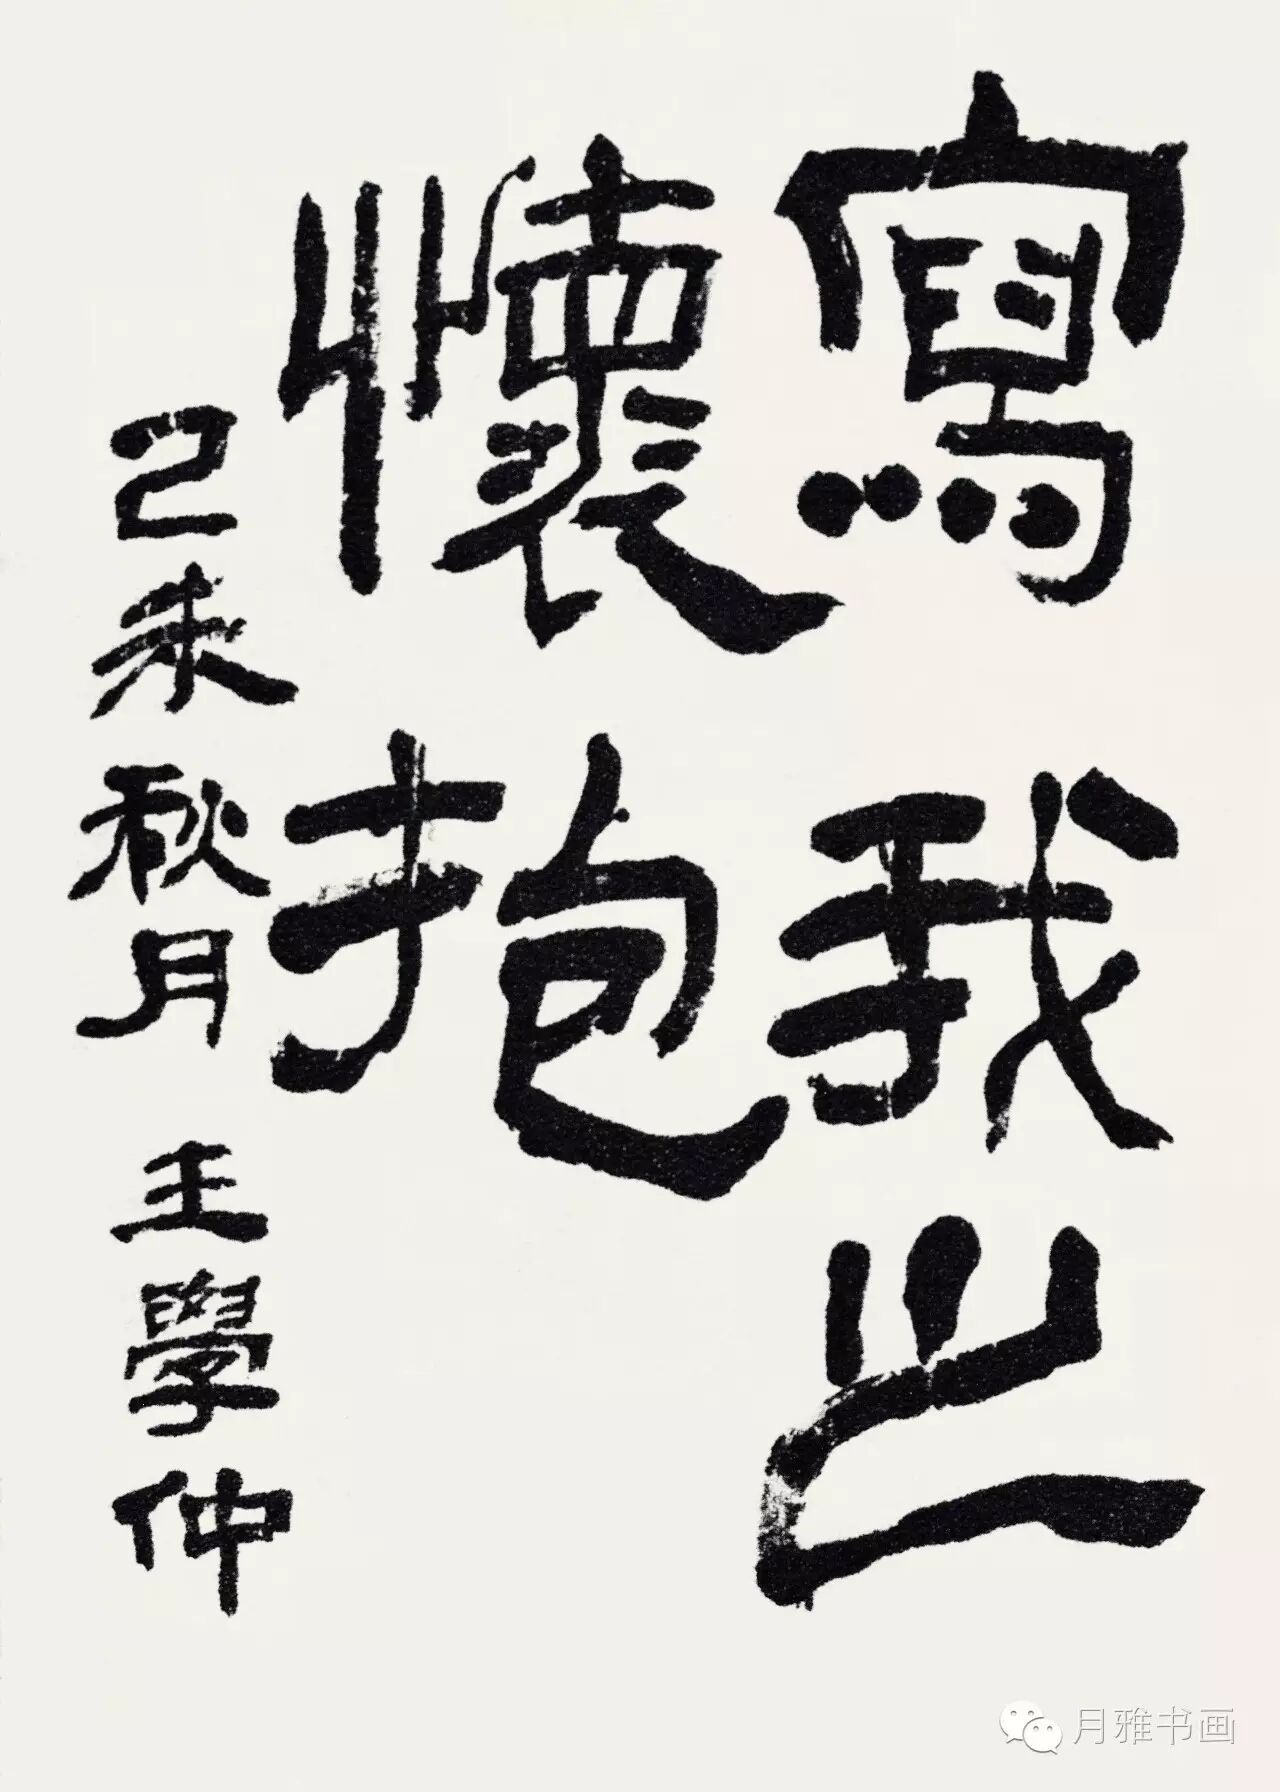 寫我之
懷抱
己未秋月 王學仲
月雅书画